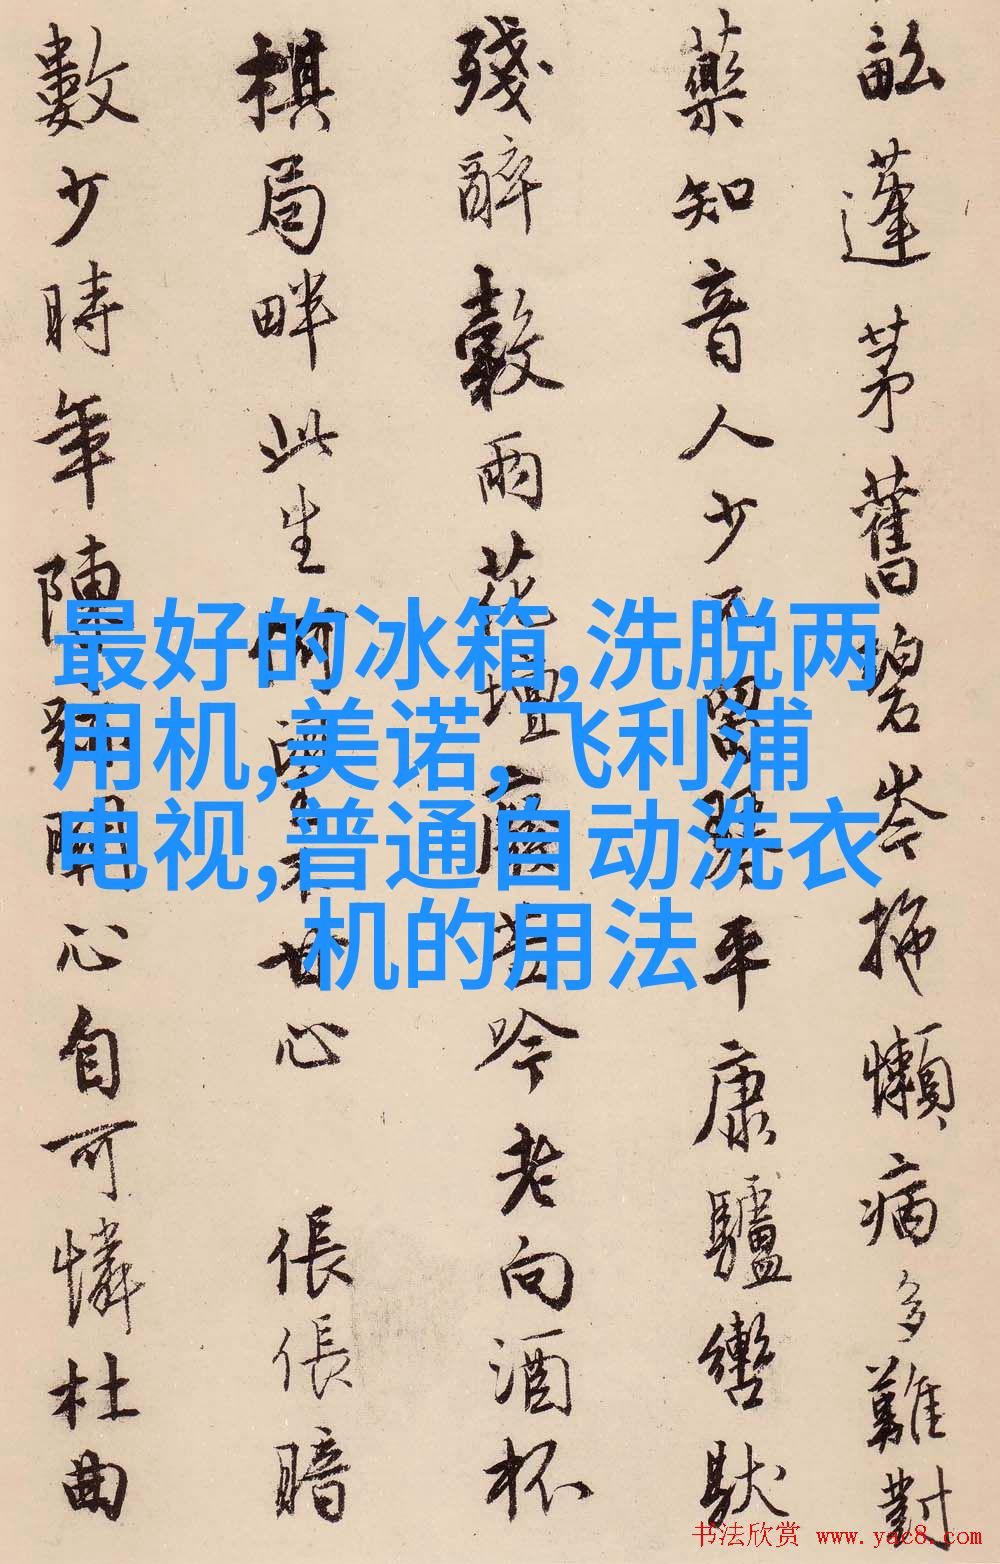 蓬茅舊碧岑拖懶病多難對
藥知音人少不留琴平康驢轡馱
殘醉穀雨花壇昔吟今老向酒杯
棋局畔此生何世心 悵悵暗
數少時年陳心自可憐杜曲
最好的冰箱,洗脱两
用机,美诺,飞利浦
电视,普通自动洗衣
机的用法
书法欣赏 www.yac8.com